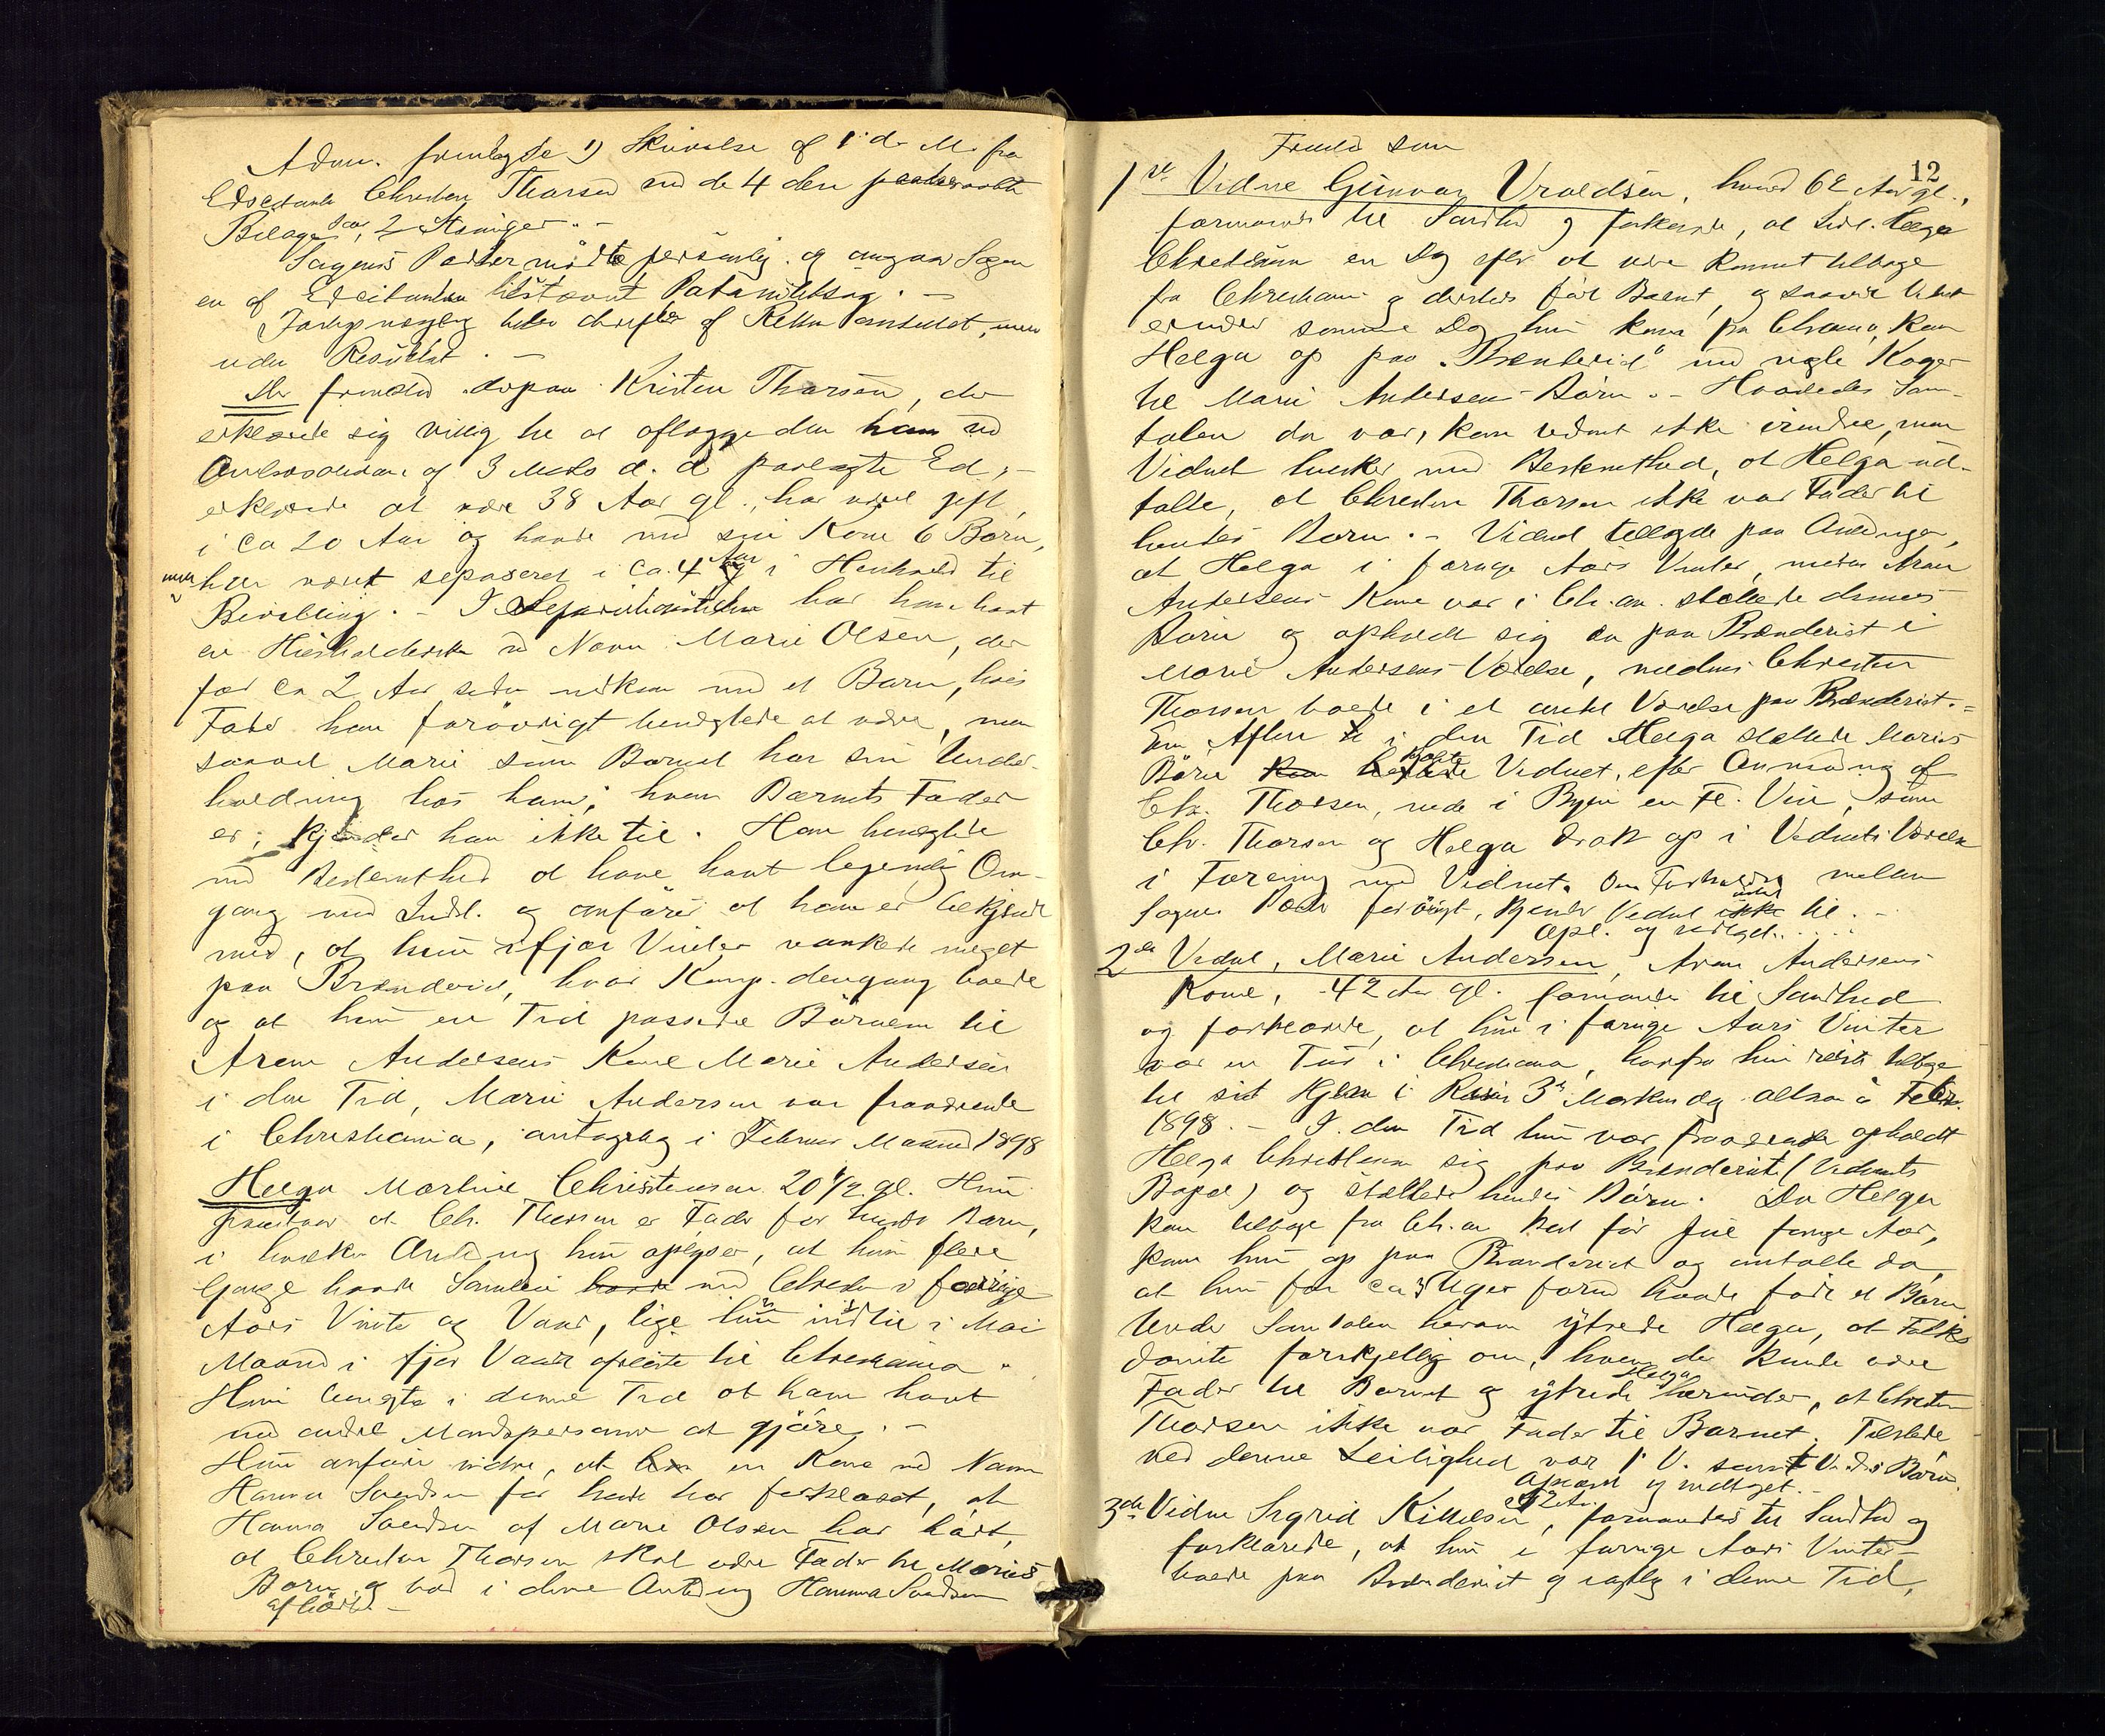 Adm. fremlagde 1) Skrivelse af 1 d. M. fra
Edscitanten Christen Thorsen med de 4 den
Bilage, 2 Stevninger. -
Sagens Parter mødte personlig og angaar Sagen
en af Edscitanten tilstævnt Paternitetssag. -
blev derefter af Retten anstillet, men
uden Resultat. -
Der fremstod derpaa Kristen Thorsen, der
erklærede sig villig til at aflægge den ham ved
af 3 Marts d. A. paalagte Ed, -
erklærede at være 38 Aar gl., har været gift
i ca 20 Aar og havde med sin Kone 6 Børn,
men har været separeret i ca. 4 Aar i Henhold til
Bevilling. - I Separationstiden har han havt
en Husholderske ved Navn Marie Olsen, der
for ca 2 Aar siden nedkom med et Barn, hvis
Fader han forøvrigt benægtede at være, men
saavel Marie som Barnet har sin Under-
holdning hos ham; hvem Barnets Fader
er, kjender han ikke til. Han benægtede
med Bestemthed at have havt legemlig Om-
gang med Indst. og anfører at han er bekjendt
med, at hun ifjor Vinter vankede meget
paa Brænderiet, hvor Komp. dengang boede
og at hun en Tid passede Børnene til
Aren Andersens Kone Marie Andersen
i den Tid, Marie Andersen var fraværende
i Christiania, antagelig i Februar Maaned 1898
Helga Martine Christensen 20 1/2 gl. Hun
paastaar at Chr. Thorsen er Fader for hendes Barn,
i hvilken Anledning hun oplyser, at hun flere
Gange havde Samleie havde med Christen i forrige
Aars Vinter og Vaar, lige til hun i Mai
Maaned i fjor Vaar afreiste til Christiania.
Hun benægter i denne Tid at have havt
med andre Mandspersoner at gjøre. -
Hun anfører videre, at en Kone ved Navn
Hanna Svendsen for hende har forklaret, at
Hanna Svendsen af Marie Olsen har hørt,
at Christen Thorsen skal være Fader til Maries
Barn og bad i denne Anledning Hanna Svendsen
afhørt. -
12
Fremstod som
1ste Vidne Gunvor Uroldsen, hvored 62 Aar gl.,
formanet til Sandhed og forklarede, at Indst. Helga
Christensen en Dag efter at være kommet tilbage
fra Christiania og dersteds født Barnet, og saavidt Vidnet
erindrer samme Dag hun kom fra Chrania, kom
Helga op paa "Brænderiet" med nogle Kager
til Marie Andersens Børn. - Hvorledes Sam-
talen da var, kan Vidnet ikke erindre, men
Vidnet husker med Bestemthed, at Helga ud-
talte, at Christen Thorsen ikke var Fader til
hendes Barn. - Vidnet tillagde paa Anledning,
at Helga i forrige Aars Vinter, medens Aren
Andersens Kone var i Chr.an. stellede dennes
Børn og opholdt sig da paa Brænderiet i
Marie Andersens Værelse, medens Christen
Thorsen boede i et andet Værelse paa Brænderiet. -
En Aften i den Tid Helga stellede Maries
Børn kjøbte Vidnet, efter Anmodning af
Chr. Thorsen, nede i Byen en Fl. Vin, som
Chr. Thorsen og Helga drak op i Vidnets Værelse
i Forening med Vidnet. Om Forholdet mellem
Sagens Parter forøvrigt, kjender Vidnet intet til. -
Opl. og vedtaget. . . . .
2det Vidne, Marie Andersen, Aren Andersens
Kone, 42 Aar gl. formanet til Sandhed
og forklarede, at hun i forrige Aars Vinter
var en Tur i Christiania, hvorfra hun reiste tilbage
til sit Hjem i Risør 3die Markendag altsaa i Febr.
1898. - I den Tid hun var fraværende opholdt
Helga Christensen sig paa Brænderiet (Vidnets
Bopæl) og stellede hendes Børn. Da Helga
kom tilbage fra Chr.an kort før Jul forrige Aar,
kom hun op paa Brænderiet og omtalte da,
at hun for ca 3 Uger forud havde født et Barn
Under Samtalen herom ytrede Helga, at Folk
dømte forskjellig om, hvem der kunde være
Fader til Barnet og ytrede Helga herunder, at Christen
Thorsen ikke var Fader til Barnet. Tilstede
ved denne Leilighed var 1. V. samt Vidnets Børn.
Oplæst og vedtaget. -
3die Vidne Sigrid Kittelsen, 52 Aar, formanedes til Sandhed og
forklarede, at hun i forrige Aars Vinter
boede paa Brænderiet og i denne Tid,